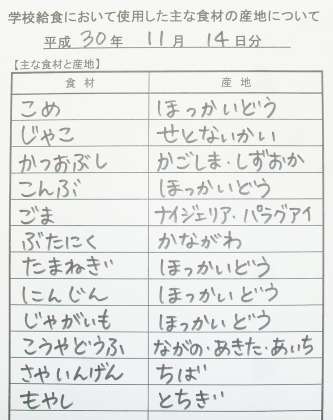 学校給食において使用した主な食材の産地について
平成 30 年 11 月 14 日分
【主な食材と産地】
食材 産地
こめ ほっかいどう
じゃこ せとないかい
かつおぶし かごしま・しずおか
こんぶ ほっかいどう
ごま ナイジェリア・パラグアイ
ぶたにく かながわ
たまねぎ ほっかいどう
にんじん ほっかいどう
じゃがいも ほっかいどう
こうやどうふ ながの・あきた・あいち
さやいんげん ちば
もやし とちぎ